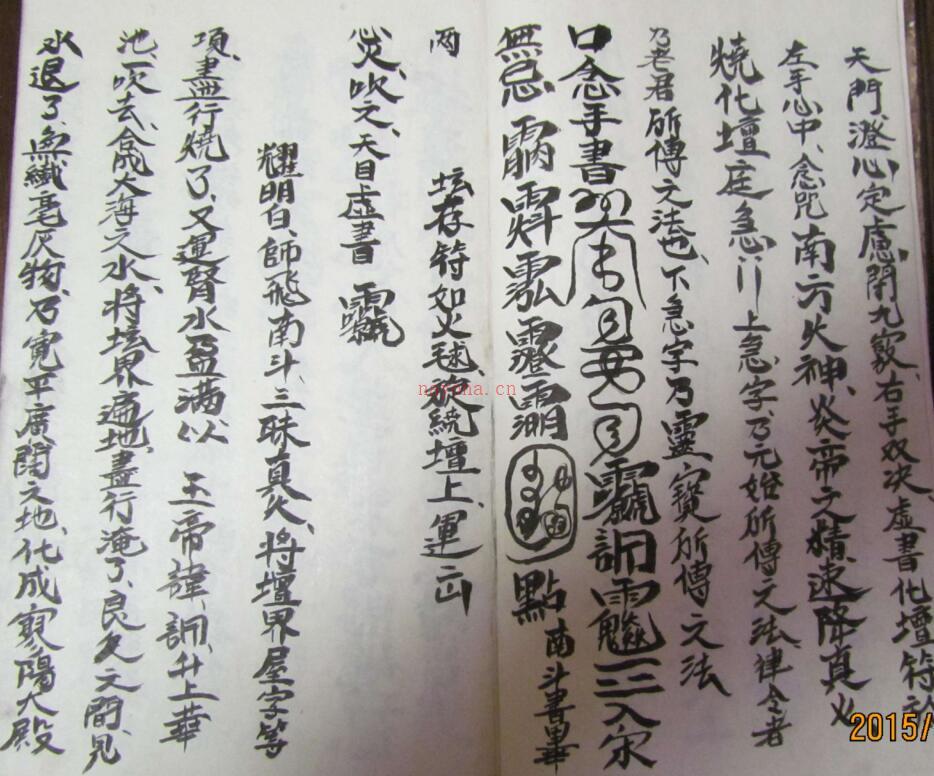 天門、澄心定慮、閉九竅、右手双决、虚書化壇符於
左手心中、念咒南方火神、炎帝之精、速降真火
燒化壇庭、急行上急字、乃元始所傳之法、律令者
乃老君所傳之法也、下急字乃靈寶所傳之法
口念手書
無忌 點南斗書畢
两 坛存符如火毬、旋繞壇上、運
心火、吹之、天目虚書
耀明白、師飛南斗、三昧真火、将壇界屋字等
項、盡行燒了、又運腎水盈满、以 玉帝諱、訶、升上華
池、一吹去、合成大海之水、将坛界遍地、盡行淹了、良久之間、見
水退了、無纖毫灰物、乃寛平廣闊之地、化成寳陽大殿
nayona.cn
2015/